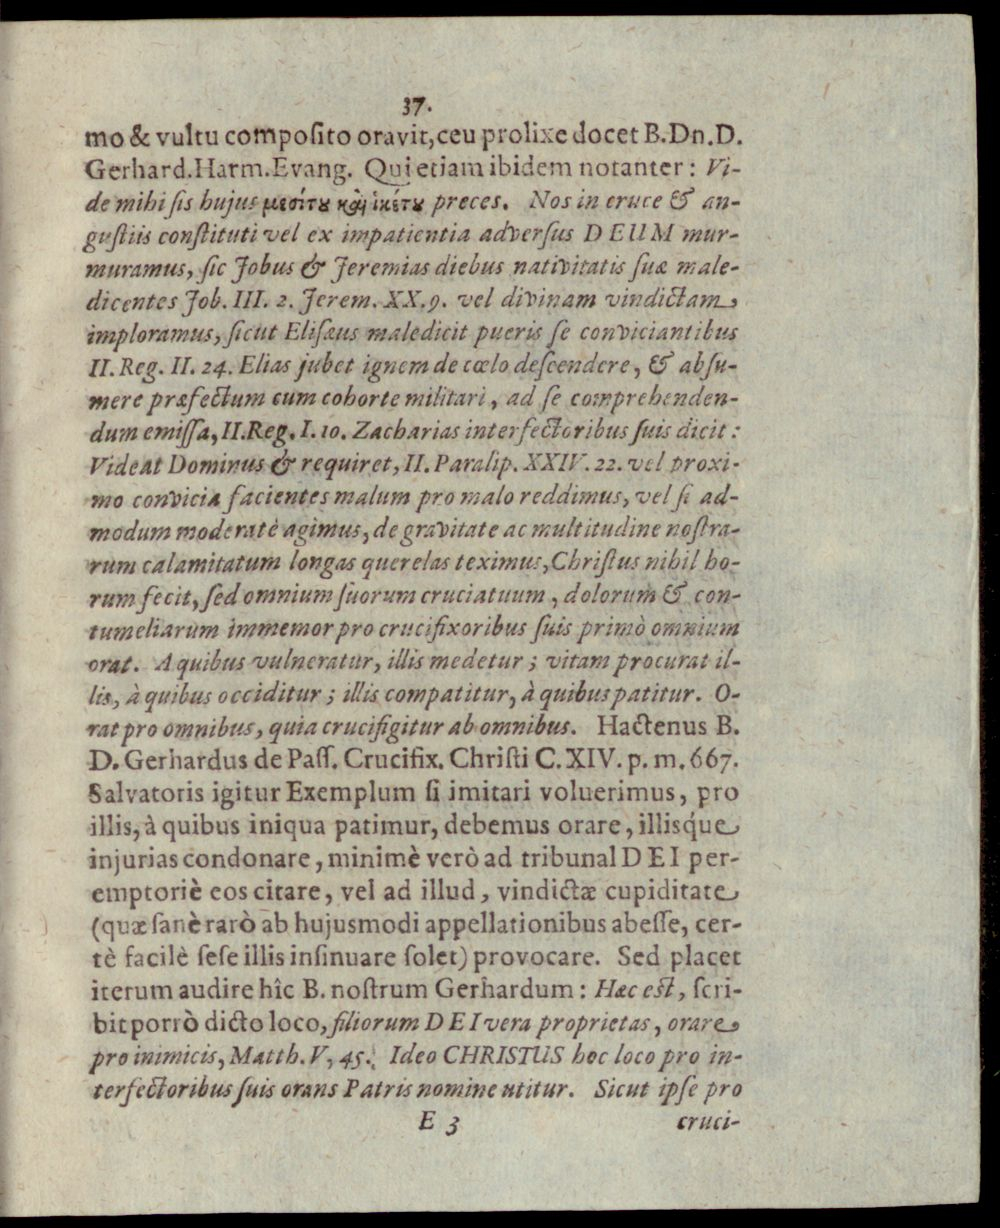 37.
mo & vultu compoſito oravit, ceu prolixe docet B. Dn. D.
Gerhard. Harm. Evang. Qui etiam ibidem notanter: Vi-
de mihi ſis hujus μεσίτȣ καὶ ἱκέτȣ preces. Nos in cruce & an-
guſtiis conſtituti vel ex impatientia adverſus DEUM mur-
muramus, ſic Jobus & Jeremias diebus nativitatis ſuæ male-
dicentes Job. III. 2. Jerem. XX. 9. vel divinam vindictam,
imploramus, ſicut Eliſæus maledicit pueris ſe conviciantibus
II. Reg. II. 24. Elias jubet ignem de cœlo deſcendere, & abſu-
mere præfectum cum cohorte militari, ad ſe comprehenden-
dum emiſſa, II. Reg. I. 10. Zacharias interfectoribus ſuis dicit:
Videat Dominus & requiret, II. Paralip. XXIV. 22. vel proxi-
mo convicia facientes malum pro malo reddimus, vel ſi ad-
modum moderatè agimus, de gravitate ac multitudine noſtra-
rum calamitatum longas querelas teximus, Chriſtus nihil ho-
rum fecit, ſed omnium ſuorum cruciatuum, dolorum & con-
tumeliarum immemor pro crucifixoribus ſuis primò omnium
orat. A quibus vulneratur, illis medetur; vitam procurat il-
lis, à quibus occiditur; illis compatitur, à quibus patitur. O-
rat pro omnibus, quia crucifigitur ab omnibus. Hactenus B.
D. Gerhardus de Paſſ. Crucifix. Chriſti C. XIV. p. m. 667.
Salvatoris igitur Exemplum ſi imitari voluerimus, pro
illis, à quibus iniqua patimur, debemus orare, illisq́ue
injurias condonare, minimè verò ad tribunal DEI per-
emptoriè eos citare, vel ad illud, vindictæ cupiditate
(quæ ſanè rarò ab hujusmodi appellationibus abeſſe, cer-
tè facilè ſeſe illis inſinuare ſolet) provocare. Sed placet
iterum audire hîc B. noſtrum Gerhardum: Hæc eſt, ſcri-
bit porrò dicto loco, filiorum DEI vera proprietas, orare
pro inimicis, Matth. V, 45. Ideo CHRISTUS hoc loco pro in-
terfectoribus ſuis orans Patris nomine utitur. Sicut ipſe pro
E 3 cruci-